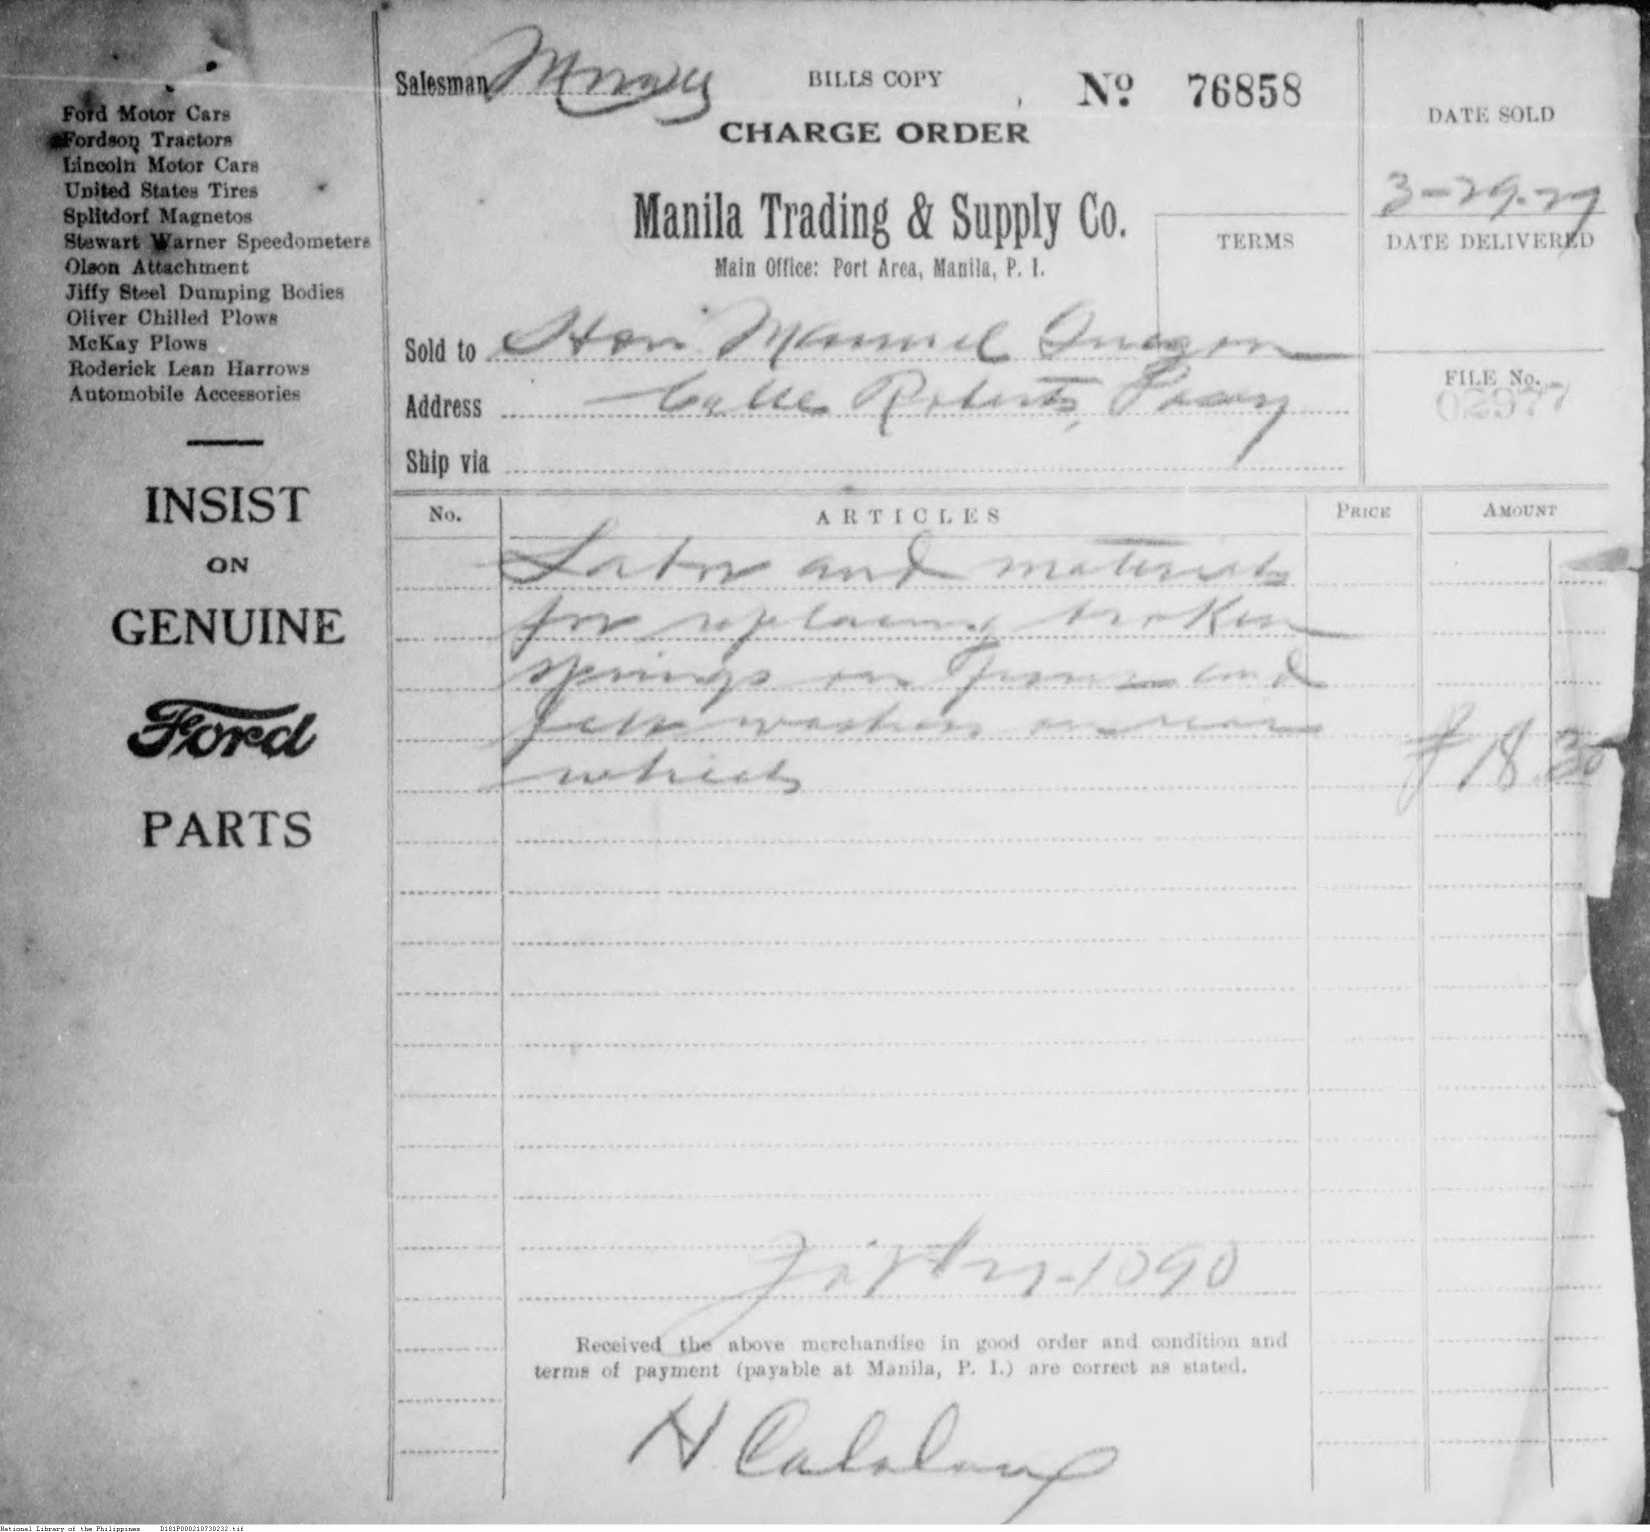 Ford Motor Cars
Fordson Tractors
Lincoln Motor Cars
United States Tires
Splitdorf Magnetos
Stewart Warner Speedometers
Olson Attachment
Jiffy Steel Dumping Bodies
Oliver Chilled Plows
McKay Plows
Roderick Lean Harrows
Automobile Accessories
INSIST
ON
GENUINE
Ford
PARTS
Salesman
BILLS COPY
No 76858
CHARGE ORDER
Manila Trading & Supply Co.
Main Office: Port Area, Manila, P. I.
TERMS
DATE SOLD
3-29-29
DATE DELIVERED
FILE No.
02977
Sold to Hon Manuel Quezon
Address Calle Roberts, Pasay
Ship via
No. ARTICLES PRICE AMOUNT
Labor and materials
for replacing broken
springs on front and
felt washers on rear
wheels ₱18.30
1090
Received the above merchandise in good order and condition and
terms of payment (payable at Manila, P. I.) are correct as stated.
H
National Library of the Philippines D181P000210730232.tif